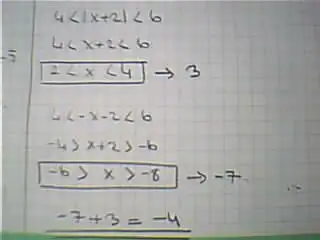 4 < |x+2| < 6
4 < x+2 < 6
2 < x < 4 → 3
4 < -x-2 < 6
-4 > x+2 > -6
-6 > x > -8 → -7
-7+3 = -4